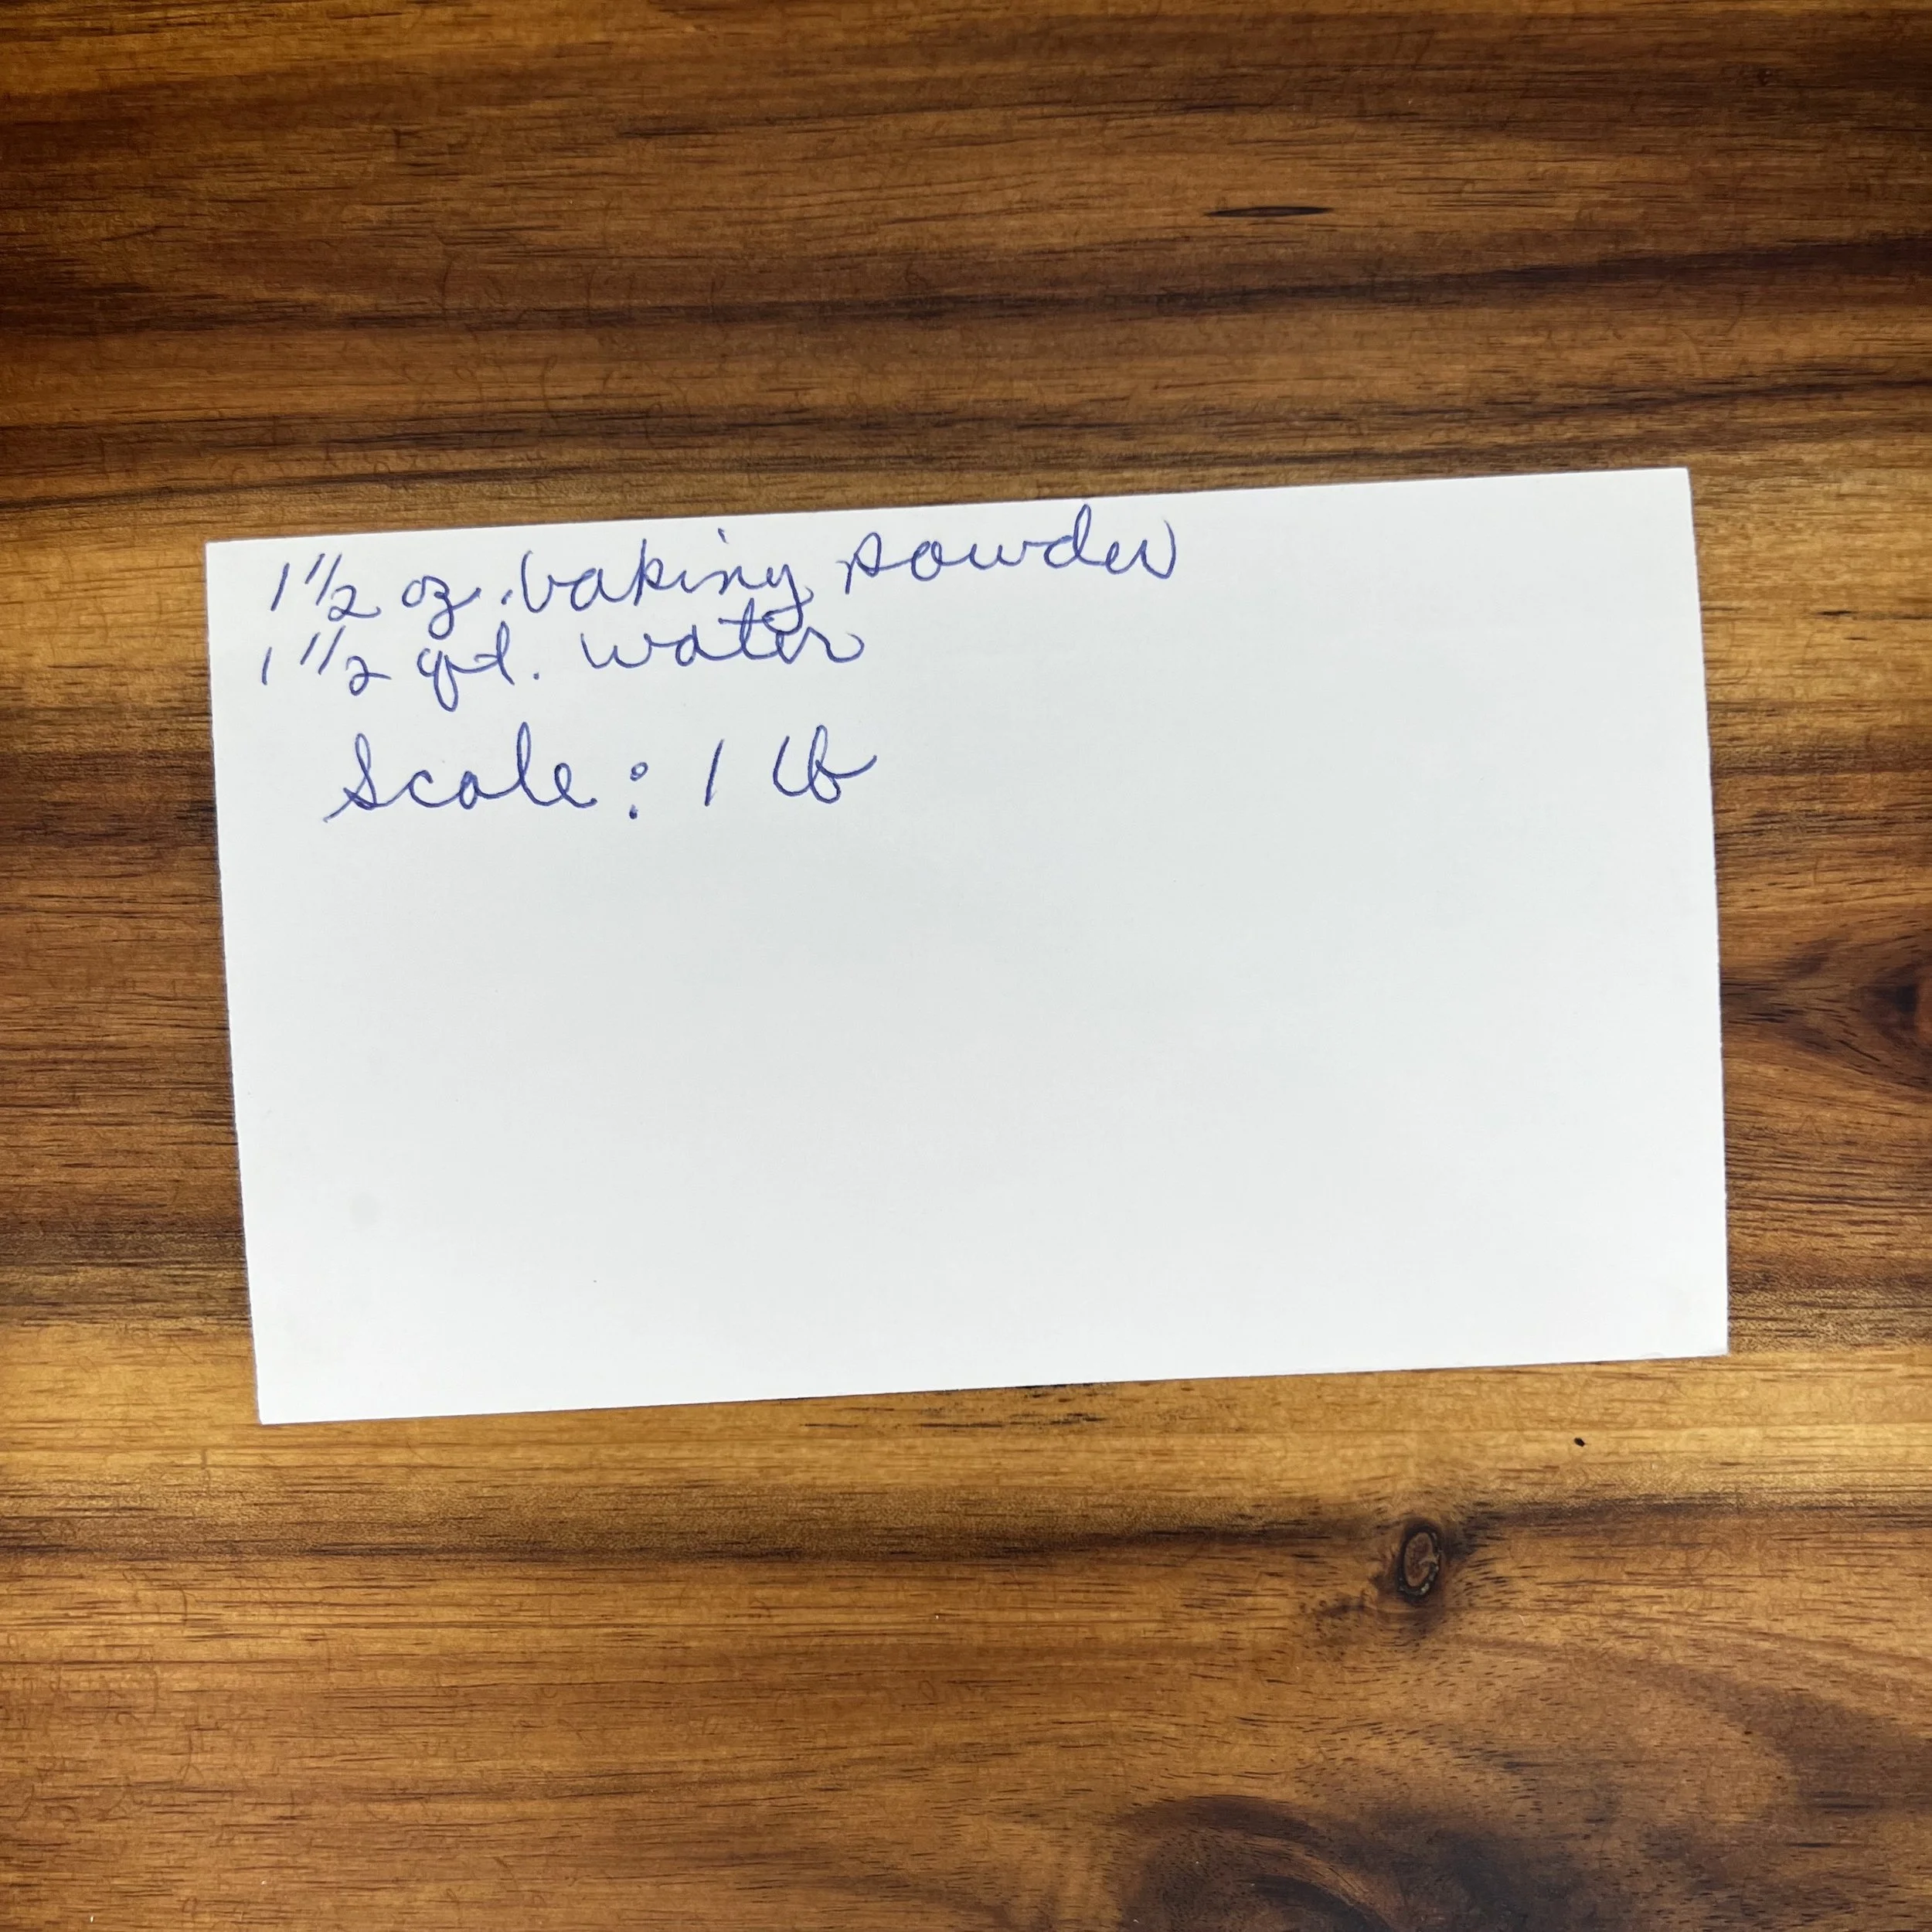 1 1/2 oz. baking powder
1 1/2 qt. water
Scale: 1 lb